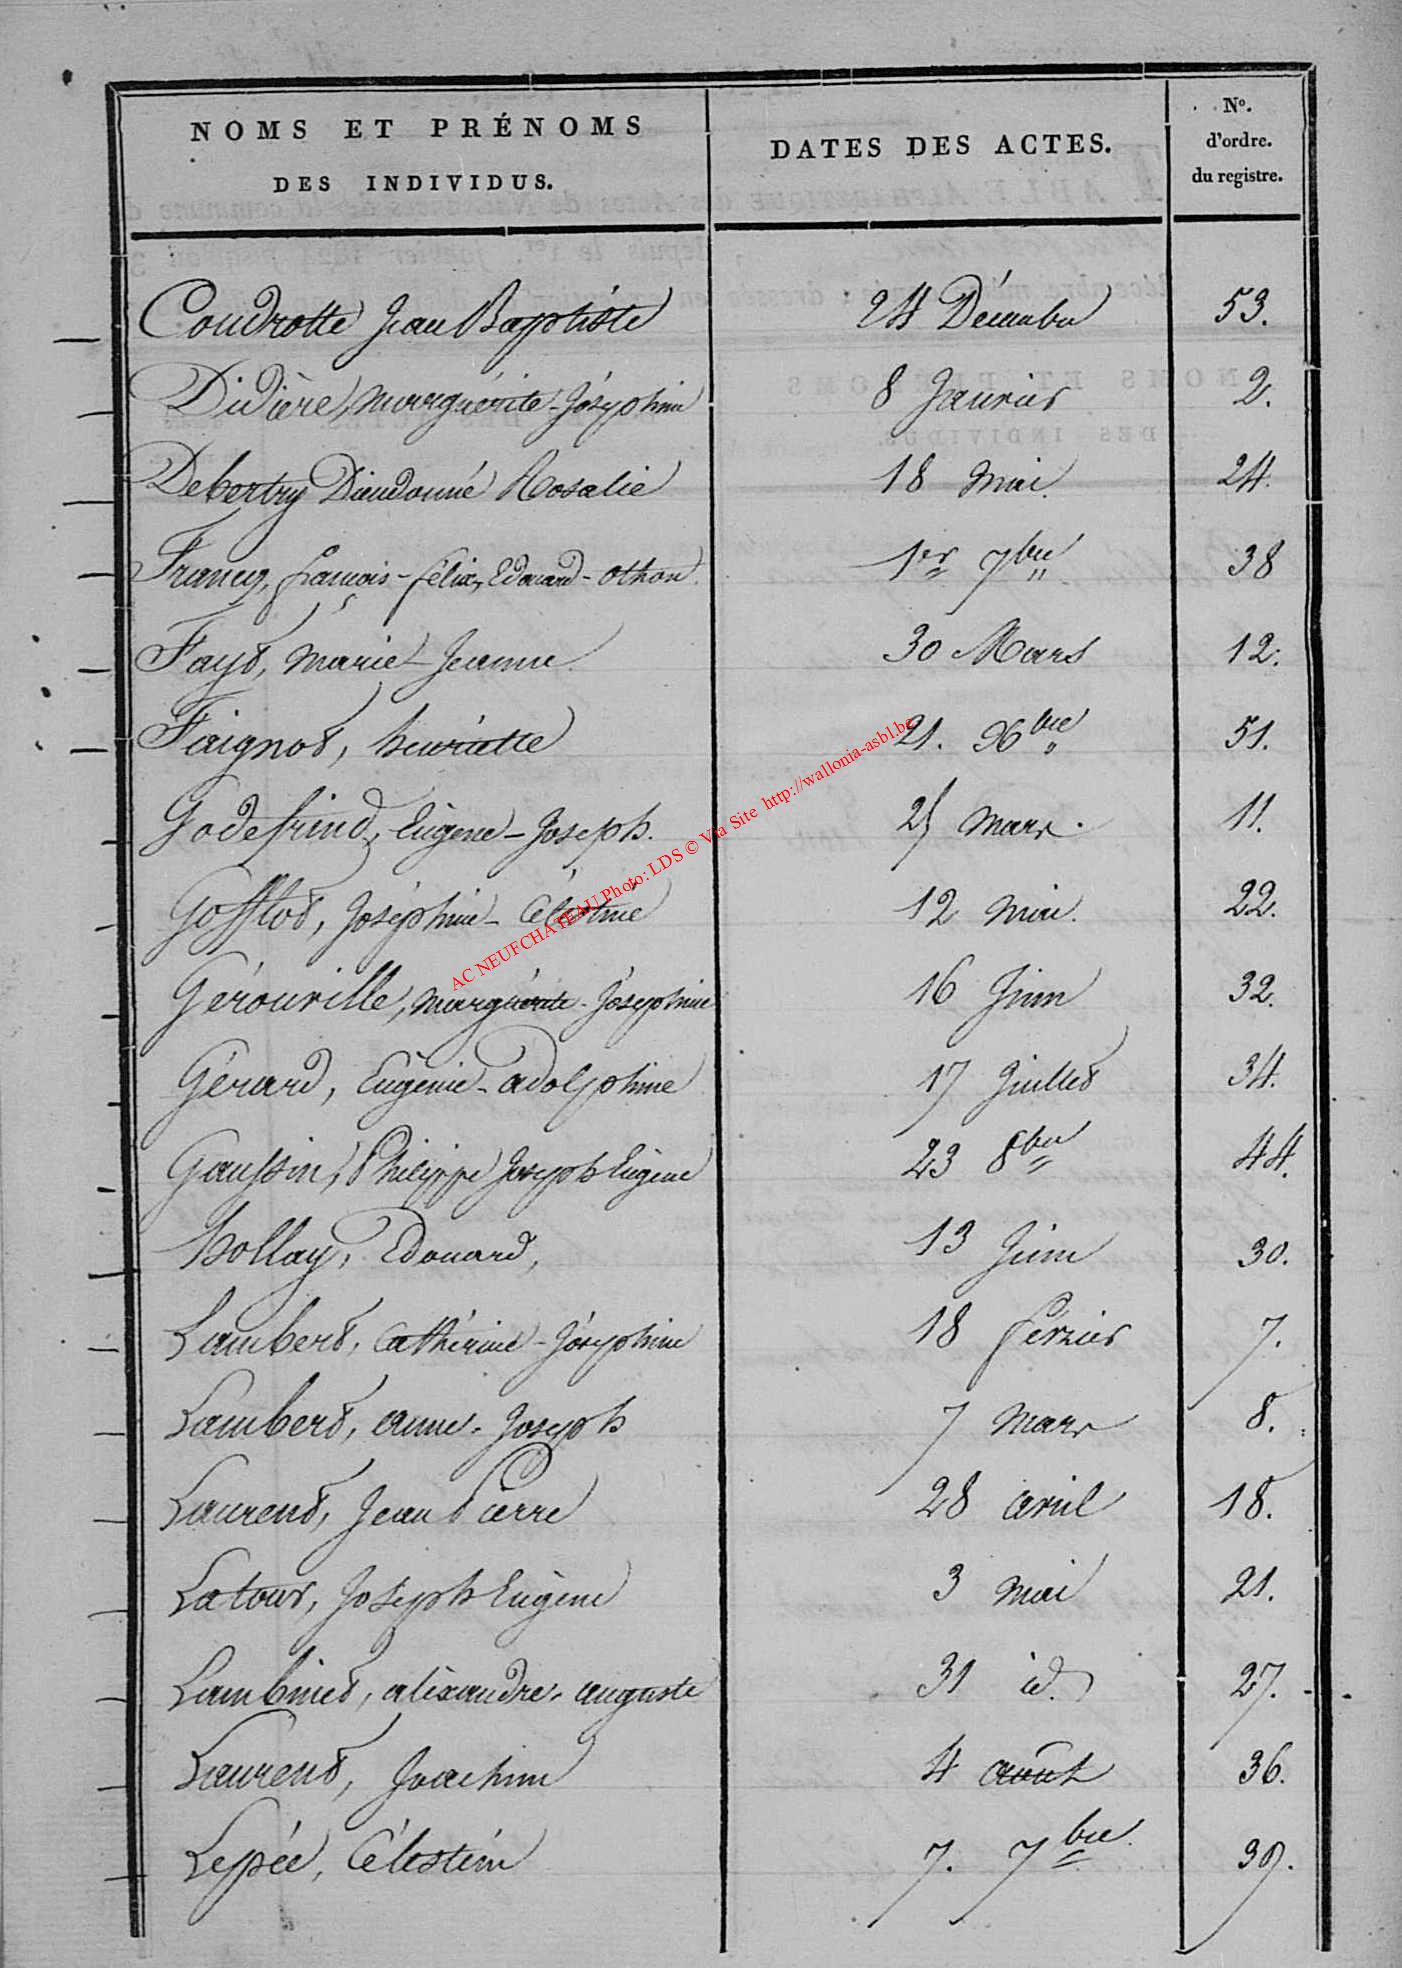 NOMS ET PRÉNOMS
DES INDIVIDUS.
DATES DES ACTES.
N°.
d'ordre.
du registre.
Coudrotte Jean Baptiste 24 Décembre 53.
Didière, Marguérite-Joséphine 8 Janvier 2.
Debertry Dieudonné Rosalie 18 Mai. 24.
Francq, françois-félix, Edouard-othon. 1er 7bre 38
Fayt, Marie-Jeanne 30 Mars 12.
Faignot, henriette 21. Xbre 51.
Godefrind, Eugène-Joseph. 25 Mars. 11.
Gofflot, Joséphine-Célestine 12 mai. 22.
Gérouville, Marguérite-Joséphine 16 Juin 32.
Gérard, Eugénie-adolphine 17 Juillet 34.
Gaussin, Philippe Joseph Eugène 23 8bre 44.
Hollay, Edouard, 13 Juin 30.
Lambert, Cathérine-Joséphine 18 février 7.
Lambert, anne-Joseph 7 Mars 8.
Laurent, Jean Pierre 28 avril 18.
Latour, Joseph Eugène 3 Mai 21.
Lambinet, aléxandre-auguste 31 id. 27.
Laurent, Joachim 4 août 36.
Lepée, Célestin 7. 7bre 39.
AC NEUFCHATEAU Photo: LDS © Via Site http://wallonia-asbl.be